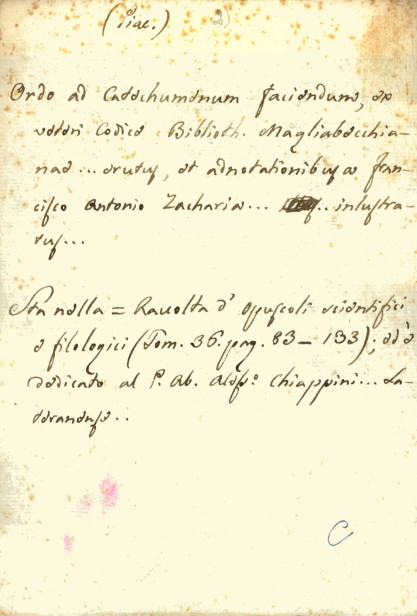 (Piac.) 2)
Ordo ad Catechumenum faciendum, ex
veteri Codice Biblioth. Magliabechia-
nae... erutus, et adnotationibus a Fran-
cisco Antonio Zacharia... inlustra-
tus...
Sta nella = Raccolta d'opuscoli scientifici
e filologici (Tom. 36. pag. 83 - 133); ed è
dedicato al P. Ab. Chiappini... La-
teranense..
C